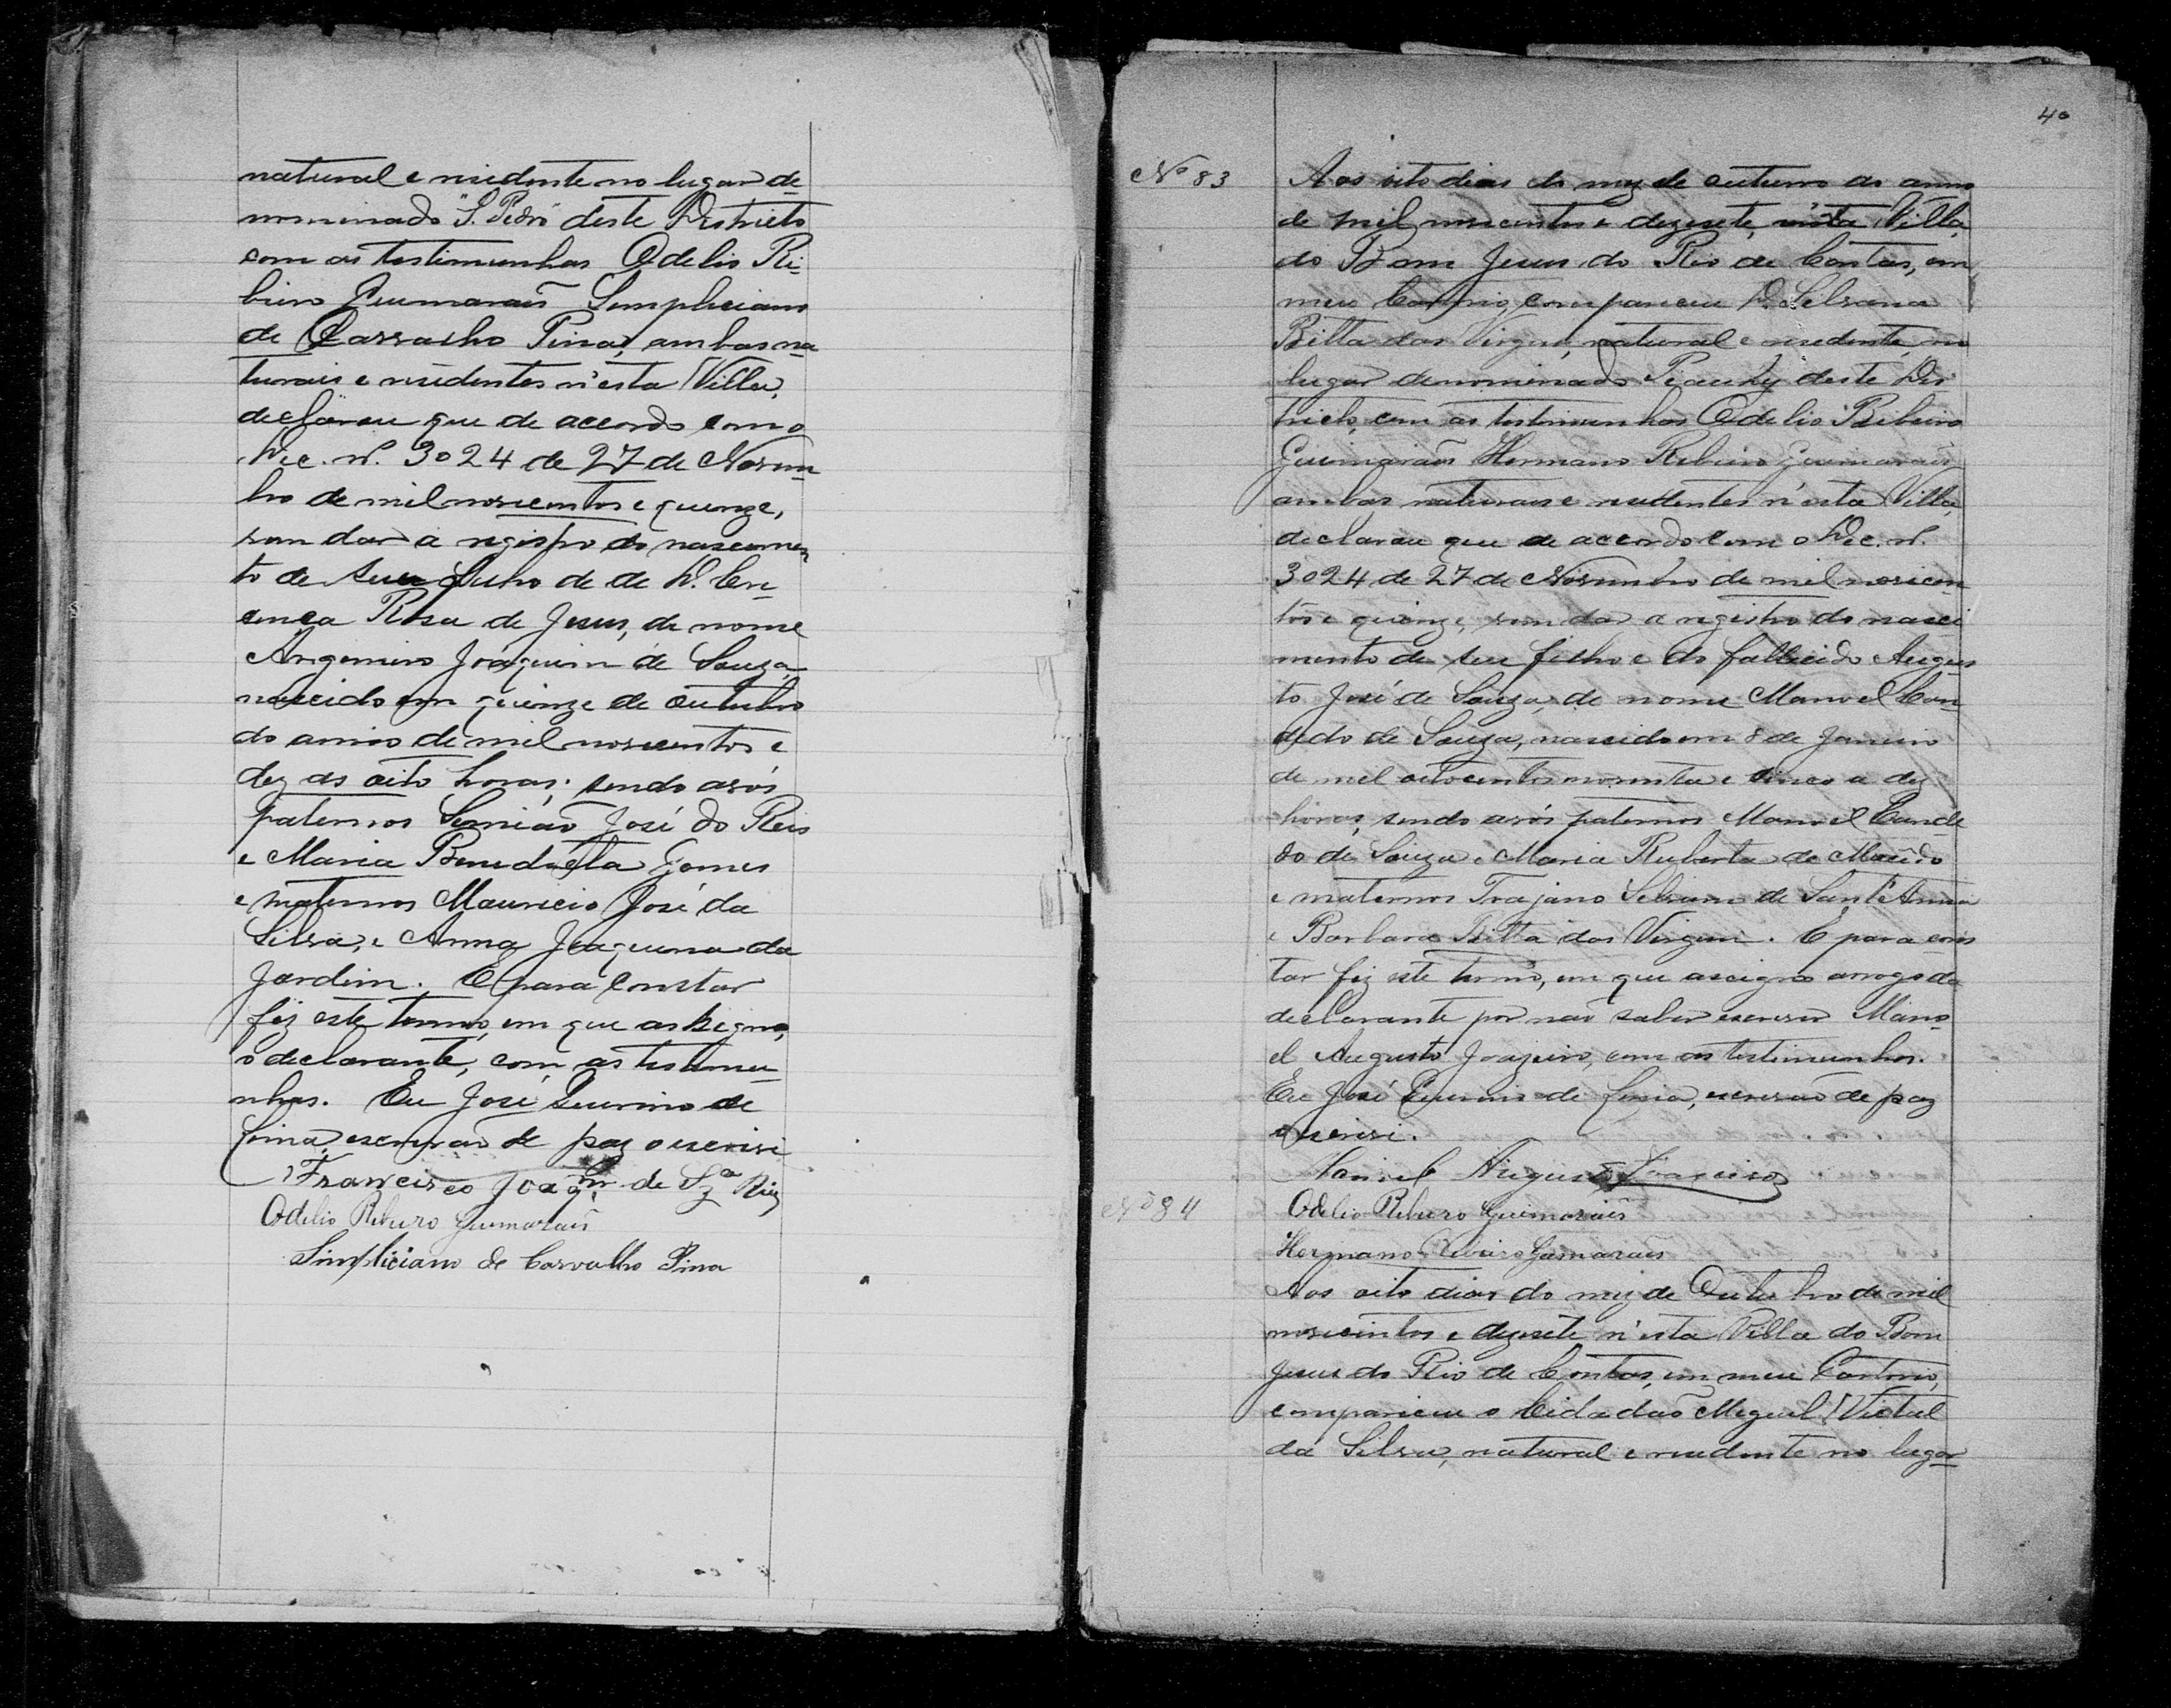 natural e residente no lugar de
nominado "S. Pedro" deste Districto
com as testimunhas Odelio Ri-
beiro Guimarães Simpliciano
de Carvalho Pina, ambas na
turais e residentes n'esta Villa,
declarou que de accordo com o
Dec. n. 3024 de 27 de Novem
bro de mil novecentos e quinze,
vem dar a registro do nascimen
to de seu filho de de D. 
Rosa de Jesus, de nome
Argemiro Joaquim de Souza,
nascido em quinze de outubro
do anno de mil novecentos e
dez as oito horas; sendo avós
paternos Simião José do Reis
e Maria Benedicta Gomes
e maternos Mauricio José da
Silva, e Anna Joaquina da
Jardim. E para constar
fiz este termo, em que assigno,
o declarante, com as testimu-
nhas. Eu José Quirino de
Lima, escrivão de paz o escrivi
Francisco Joaqm de Sza Reis
Odelio Ribeiro Guimarães
Simpliciano de Carvalho Pina
40
Nº 83
Aos oito dias do mez de outubro do anno
de mil novecentos e dezesete, n'esta Villa,
do Bom Jesus do Rio de Contas, em
meu Cartorio, compareceu D. Selvana
Bitta das Virgens, natural e residente, no
lugar denominado Piauhy deste Dis
tricto, com as testimunhas Odelio Ribeiro
Guimarães Hermano Ribeiro Guimarães
ambas naturaes e residentes n'esta Villa,
declarou que de accordo com o Dec. n.
3024 de 27 de Novembro de mil novecen
tos e quinze, vem dar a registro do nasci
mento de seu filho e do fallecido Augus
to José de Souza, de nome Manoel Can
dido de Souza, nascido em 8 de Janeiro
de mil oitocentos noventa e cinco a dez
horas, sendo avós paternos Manoel Candi
do de Souza e Maria Ruberta de Macêdo
e maternos Trajano Selvano de Sant'Anna
e Barbara Bitta das Virgens. E para cons
tar fiz este termo, em que assigno arrogo da
declarante por não saber escrever Mano
el Augusto Joazeiro, com as testimunhas.
Eu José Quirino de Lima, escrivão de paz
o escrivi.
Manoel Augusto Joaseiro
Odelio Ribeiro Guimarães
Hermano Ribeiro Guimarães
Nº 84
Aos oito dias do mez de Outubro de mil
novecentos e dezesete n'esta Villa do Bom
Jesus do Rio de Contas, em meu Cartorio,
compareceu o Cidadão Miguel Victal
da Silva, natural e residente no lugar